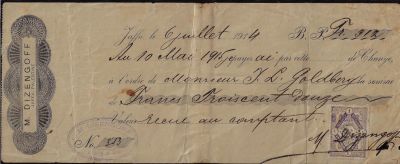 M. DIZENGOFF
Jaffa le 6 juillet 1914 B. P. Fr. 312
Au 10 Mai 1915 payez par cette de Change,
à l'ordre de Monsieur J. L. Goldberg la somme
de Francs Troiscent Douze
valeur recue au comptant
No. 313
M Dizengoff